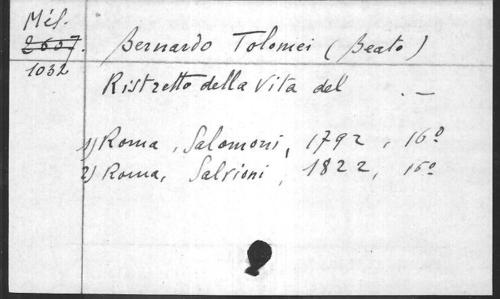 Mél.
2607.
1032
Bernardo Tolomei (Beato)
Ristretto della Vita del . —
1) Roma, Salomoni, 1792, 16º
2) Roma, Salvioni, 1822, 16º